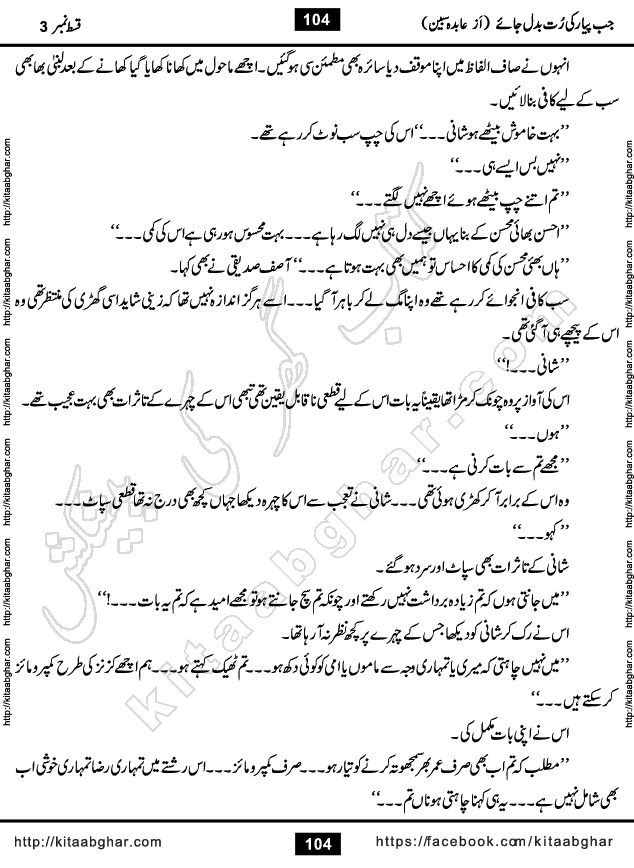 جب پیار کی رُت بدل جائے (از عابدہ سبین)
104
قسط نمبر 3
انہوں نے صاف الفاظ میں اپنا موقف دیا سائرہ بھی مطمئن سی ہو گئیں۔ اچھے ماحول میں کھانا کھایا گیا کھانے کے بعد لبنیٰ بھابھی
سب کے لیے کافی بنا لائیں۔
’’بہت خاموش بیٹھے ہو شانی۔۔۔‘‘ اس کی چپ سب نوٹ کر رہے تھے۔
’’نہیں بس ایسے ہی۔۔۔‘‘
’’تم اتنے چپ بیٹھے ہوئے اچھے نہیں لگتے۔۔۔‘‘
’’احسن بھائی محسن کے بنا یہاں جیسے دل ہی نہیں لگ رہا ہے۔۔۔ بہت محسوس ہو رہی ہے اس کی کمی۔۔۔‘‘
’’ہاں بھئی محسن کی کمی کا احساس تو ہمیں بھی بہت ہوتا ہے۔۔۔‘‘ آصف صدیقی نے بھی کہا۔
سب کافی انجوائے کر رہے تھے وہ اپنا مگ لے کر باہر آ گیا۔۔۔ اسے ہرگز اندازہ نہیں تھا کہ زینی شاید اسی گھڑی کی منتظر تھی وہ
اس کے پیچھے ہی آ گئی تھی۔
’’شانی۔۔۔!‘‘
اس کی آواز پر وہ چونک کر مڑا تھا یقیناً یہ بات اس کے لیے قطعی ناقابل یقین تھی تبھی اس کے چہرے کے تاثرات بھی بہت عجیب تھے۔
’’ہوں۔۔۔‘‘
’’مجھے تم سے بات کرنی ہے۔۔۔‘‘
وہ اس کے برابر آ کر کھڑی ہوئی تھی۔۔۔ شانی نے تعجب سے اس کا چہرہ دیکھا جہاں کچھ بھی درج نہ تھا قطعی سپاٹ۔۔۔
’’کہو۔۔۔‘‘
شانی کے تاثرات بھی سپاٹ اور سرد ہو گئے۔
’’میں جانتی ہوں کہ تم زیادہ برداشت نہیں رکھتے اور چونکہ تم سچ جانتے ہو تو مجھے امید ہے کہ تم یہ بات۔۔۔!‘‘
اس نے رک کر شانی کو دیکھا جس کے چہرے پر کچھ نظر نہ آ رہا تھا۔
’’میں نہیں چاہتی کہ میری یا تمہاری وجہ سے ماموں یا امی کو کوئی دکھ ہو۔۔۔ تم ٹھیک کہتے ہو۔۔۔ ہم اچھے کزنز کی طرح کمپرومائز
کر سکتے ہیں۔۔۔‘‘
اس نے اپنی بات مکمل کی۔
’’مطلب کہ تم اب بھی صرف عمر بھر سمجھوتہ کرنے کو تیار ہو۔۔۔ صرف کمپرومائز۔۔۔ اس رشتے میں تمہاری رضا تمہاری خوشی اب
بھی شامل نہیں ہے۔۔۔ یہ ہی کہنا چاہتی ہو ناں تم۔۔۔‘‘
کتاب گھر کی پیشکش
kitaabghar.com
http://kitaabghar.com
http://kitaabghar.com
http://kitaabghar.com
http://kitaabghar.com
http://kitaabghar.com
http://kitaabghar.com
http://kitaabghar.com
http://kitaabghar.com
http://kitaabghar.com
http://kitaabghar.com
http://kitaabghar.com
http://kitaabghar.com
http://kitaabghar.com
104
https://facebook.com/kitaabghar